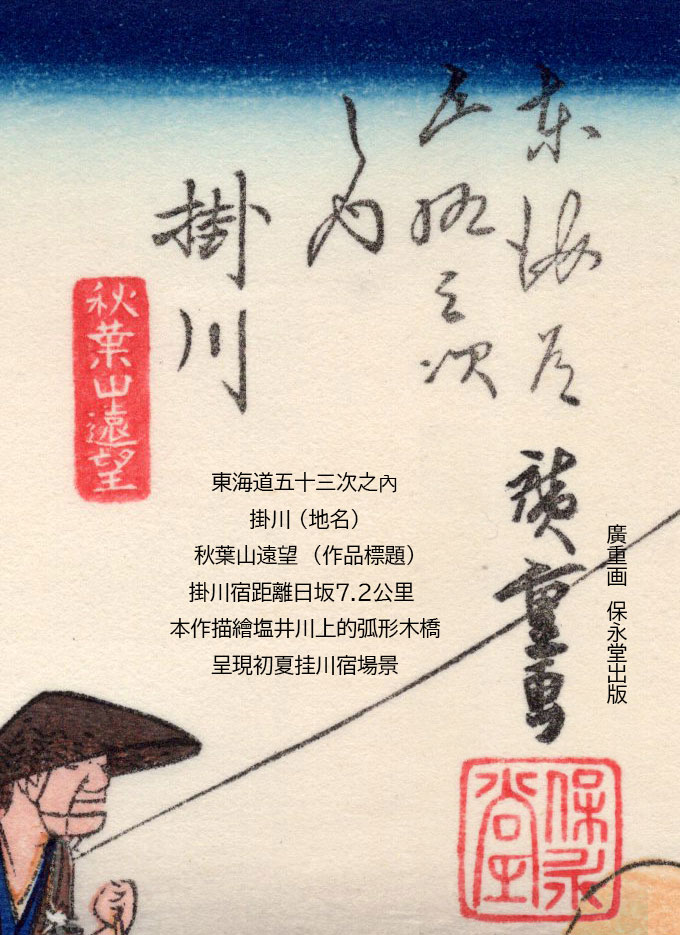 東海道
五拾三次
之内
掛川
秋葉山遠望
廣重画
保永堂
東海道五十三次之內
掛川（地名）
秋葉山遠望 （作品標題）
掛川宿距離日坂7.2公里
本作描繪塩井川上的弧形木橋
呈現初夏挂川宿場景
廣重画 保永堂出版